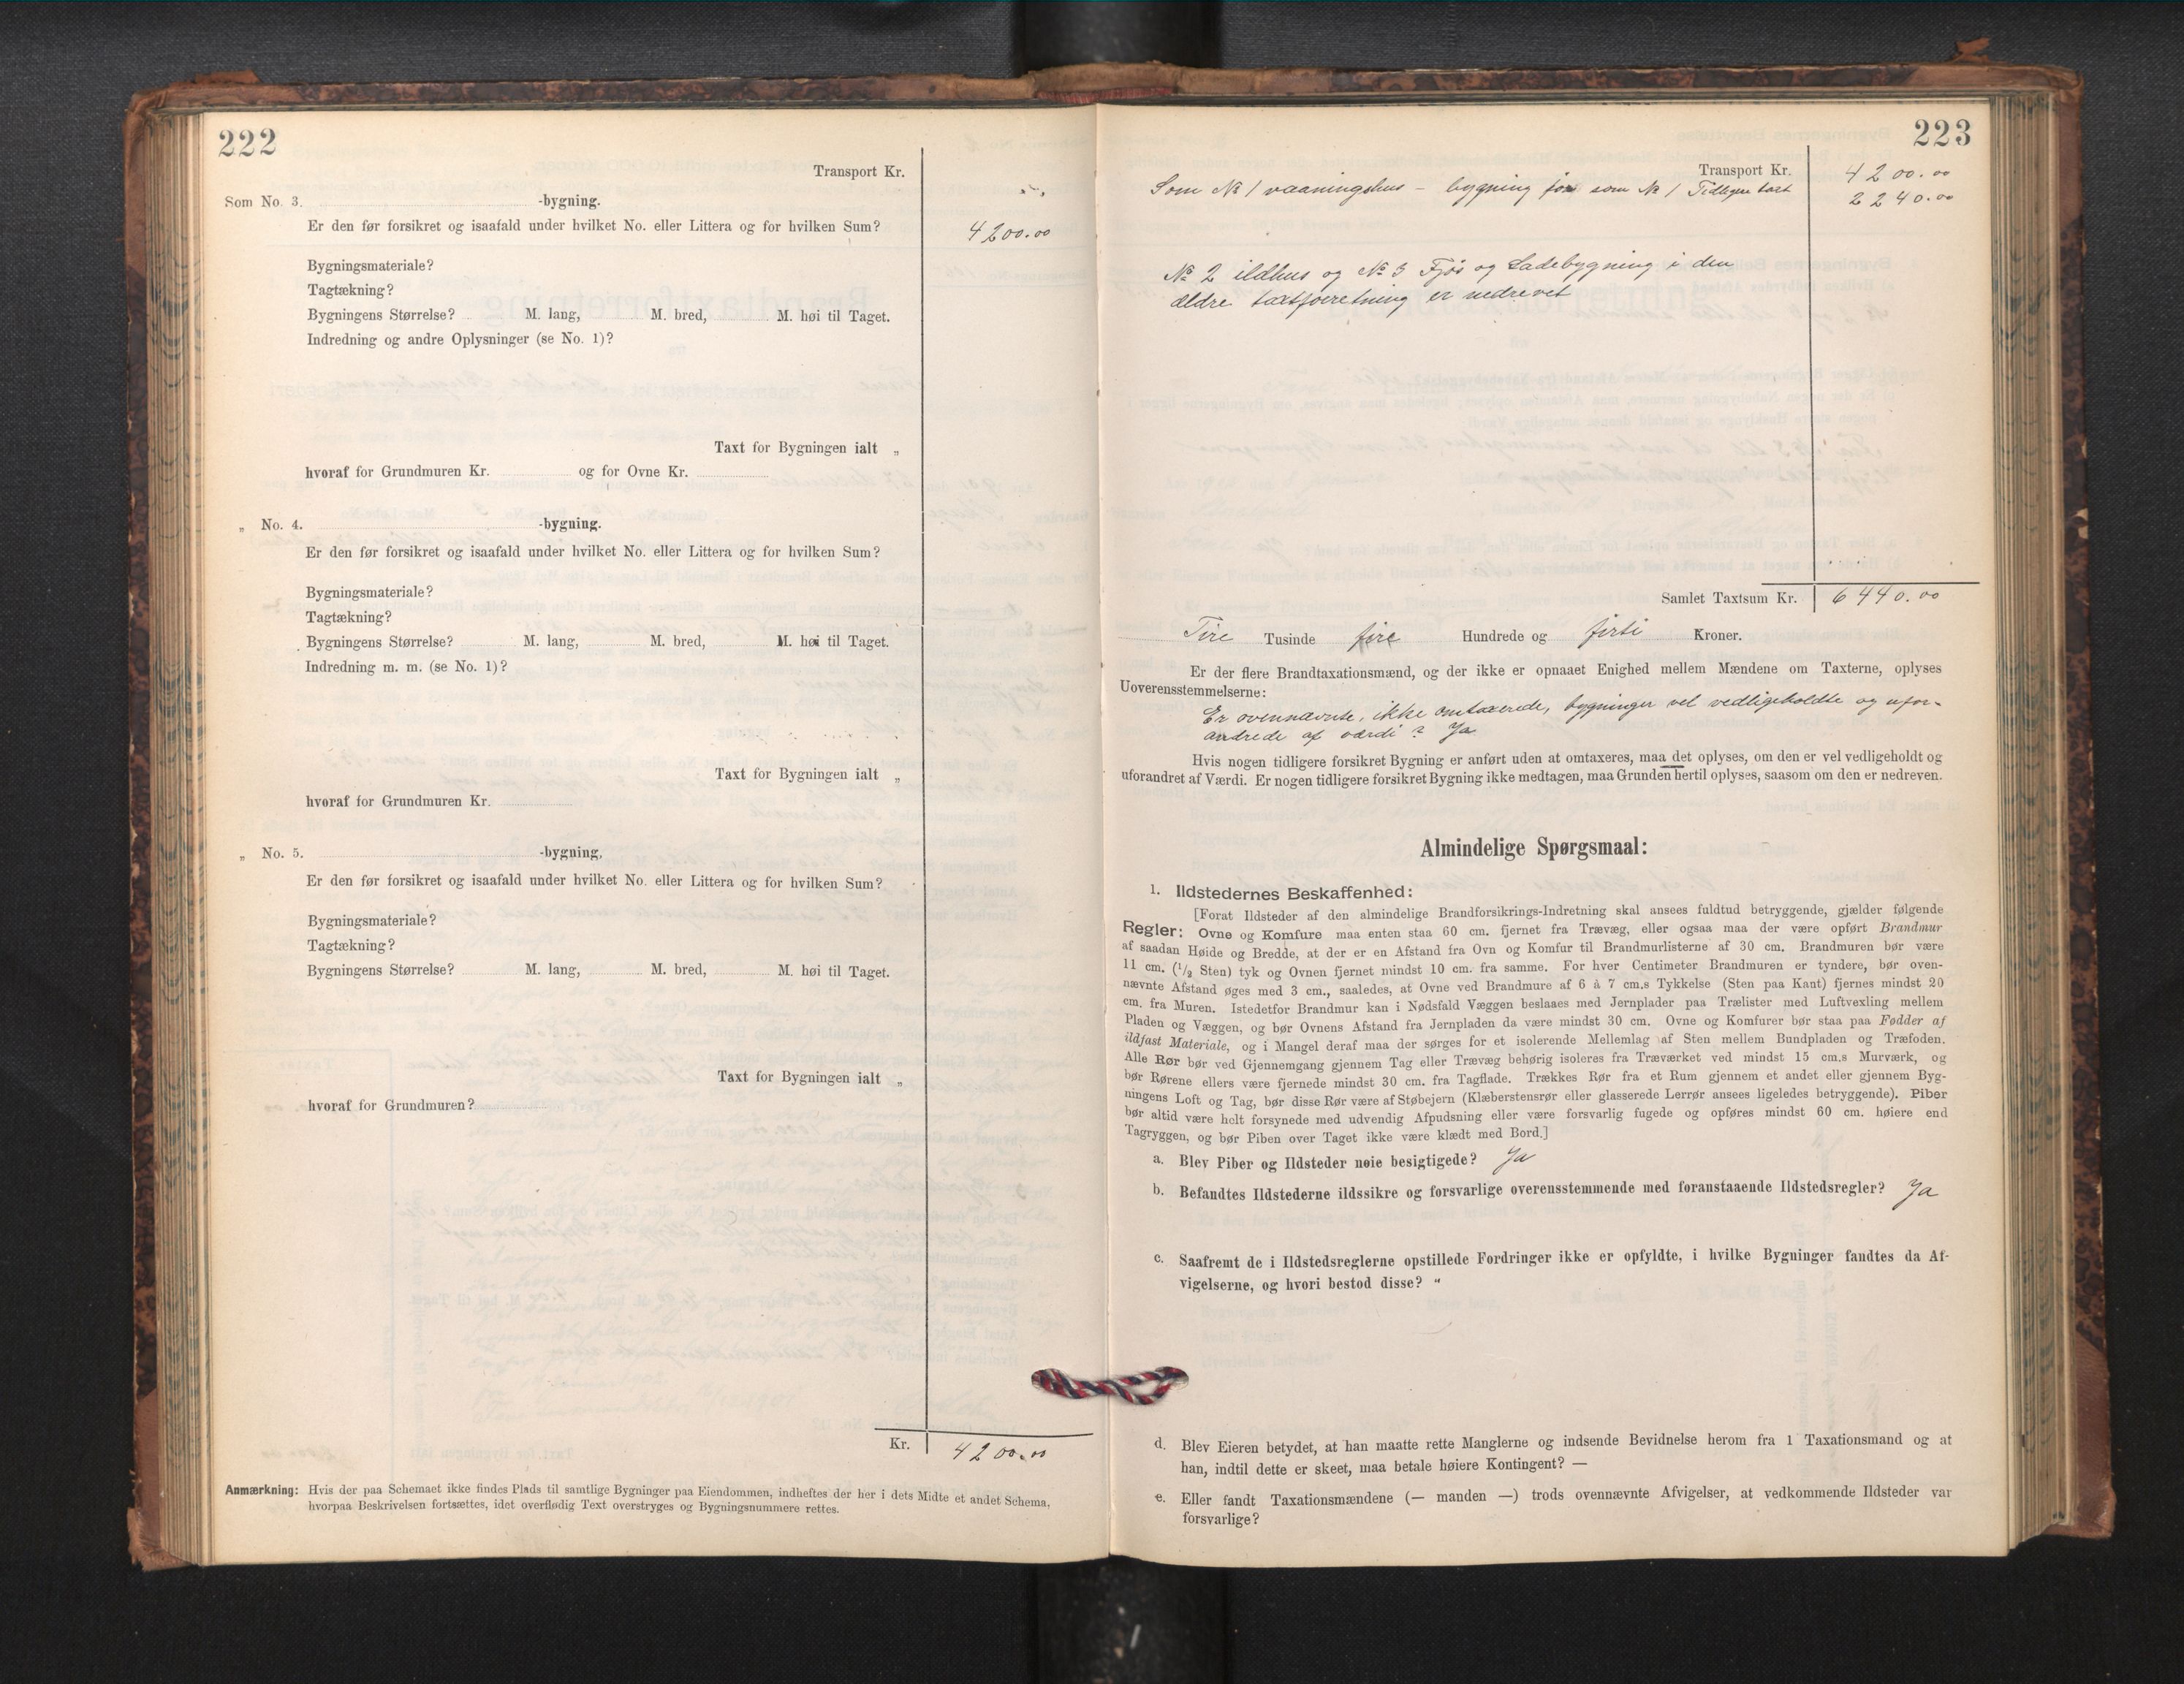 222
Transport Kr.
Som No. 3. -bygning.
Er den før forsikret og isaafald under hvilket No. eller Littera og for hvilken Sum? 4200.00
Bygningsmateriale?
Tagtækning?
Bygningens Størrelse? M. lang, M. bred, M. høi til Taget.
Indredning og andre Oplysninger (se No. 1)?
Taxt for Bygningen ialt „
hvoraf for Grundmuren Kr. og for Ovne Kr.
„ No. 4. -bygning.
Er den før forsikret og isaafald under hvilket No. eller Littera og for hvilken Sum?
Bygningsmateriale?
Tagtækning?
Bygningens Størrelse? M. lang, M. bred, M. høi til Taget.
Indredning m. m. (se No. 1)?
Taxt for Bygningen ialt „
hvoraf for Grundmuren Kr.
„ No. 5. -bygning,
Er den før forsikret og isaafald under hvilket No. eller Littera og for hvilken Sum?
Bygningsmateriale?
Tagtækning?
Bygningens Størrelse? M. lang, M. bred, M. høi til Taget.
Taxt for Bygningen ialt „
hvoraf for Grundmuren?
Kr. 4200.00
Anmærkning: Hvis der paa Schemaet ikke findes Plads til samtlige Bygninger paa Eiendommen, indheftes der her i dets Midte et andet Schema,
hvorpaa Beskrivelsen fortsættes, idet overflødig Text overstryges og Bygningsnummere rettes.
223
Transport Kr. 4200.00
Som No 1 vaaningshus - bygning før som No 1 Tidligere taxt 2240.00
No 2 ildhus og No 3 Fjøs og Ladebygning i den
ældre taxtforretning er nedrevet
Samlet Taxtsum Kr. 6440.00
Tusinde fire Hundrede og firti Kroner.
Er der flere Brandtaxationsmænd, og der ikke er opnaaet Enighed mellem Mændene om Taxterne, oplyses
Uoverensstemmelserne:
Er ovennævnte, ikke omtaxerede, bygninger vel vedligeholdte og ufor-
andrede af værdi? Ja
Hvis nogen tidligere forsikret Bygning er anført uden at omtaxeres, maa det oplyses, om den er vel vedligeholdt og
uforandret af Værdi. Er nogen tidligere forsikret Bygning ikke medtagen, maa Grunden hertil oplyses, saasom om den er nedreven.
Almindelige Spørgsmaal:
1. Ildstedernes Beskaffenhed:
[Forat Ildsteder af den almindelige Brandforsikrings-Indretning skal ansees fuldtud betryggende, gjælder følgende
Regler: Ovne og Komfure maa enten staa 60 cm. fjernet fra Trævæg, eller ogsaa maa der være opført Brandmur
af saadan Høide og Bredde, at der er en Afstand fra Ovn og Komfur til Brandmurlisterne af 30 cm. Brandmuren bør være
11 cm. (1/2 Sten) tyk og Ovnen fjernet mindst 10 cm. fra samme. For hver Centimeter Brandmuren er tyndere, bør oven-
nævnte Afstand øges med 3 cm., saaledes, at Ovne ved Brandmure af 6 à 7 cm.s Tykkelse (Sten paa Kant) fjernes mindst 20
cm. fra Muren. Istedetfor Brandmur kan i Nødsfald Væggen beslaaes med Jernplader paa Trælister med Luftvexling mellem
Pladen og Væggen, og bør Ovnens Afstand fra Jernpladen da være mindst 30 cm. Ovne og Komfurer bør staa paa Fødder af
ildfast Materiale, og i Mangel deraf maa der sørges for et isolerende Mellemlag af Sten mellem Bundpladen og Træfoden.
Alle Rør bør ved Gjennemgang gjennem Tag eller Trævæg behørig isoleres fra Træværket ved mindst 15 cm.s Murværk, og
bør Rørene ellers være fjernede mindst 30 cm. fra Tagflade. Trækkes Rør fra et Rum gjennem et andet eller gjennem Byg-
ningens Loft og Tag, bør disse Rør være af Støbejern (Klæberstensrør eller glasserede Lerrør ansees ligeledes betryggende). Piber
bør altid være helt forsynede med udvendig Afpudsning eller være forsvarlig fugede og opføres mindst 60 cm. høiere end
Tagryggen, og bør Piben over Taget ikke være klædt med Bord.]
a. Blev Piber og Ildsteder nøie besigtigede? Ja
b. Befandtes Ildstederne ildssikre og forsvarlige overensstemmende med foranstaaende Ildstedsregler? Ja
c. Saafremt de i Ildstedsreglerne opstillede Fordringer ikke er opfyldte, i hvilke Bygninger fandtes da Af-
vigelserne, og hvori bestod disse? “
d. Blev Eieren betydet, at han maatte rette Manglerne og indsende Bevidnelse herom fra 1 Taxationsmand og at
han, indtil dette er skeet, maa betale høiere Kontingent? —
e. Eller fandt Taxationsmændene (— manden —) trods ovennævnte Afvigelser, at vedkommende Ildsteder var
forsvarlige?